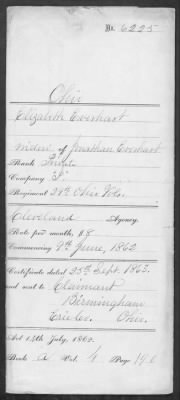 No. 6225
Ohio
Elizabeth Everhart
Widow of Jonathan Everhart
Rank Private
Company "F"
Regiment Ohio Vols.
Cleveland Agency.
Rate per month, $8
Commencing 9th June, 1862
Certificate dated 25th Sept. 1863.
and sent to Claimant
Birmingham
Erie Co. Ohio.
Act 14th July, 1862.
Book A Vol. Page